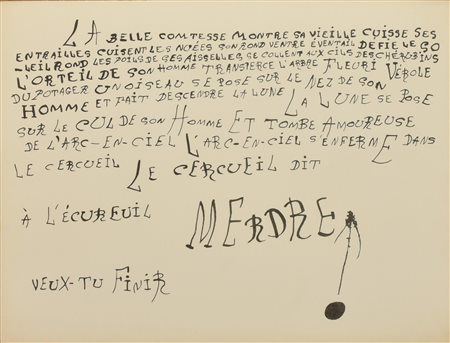 LA BELLE COMTESSE MONTRE SA VIEILLE CUISSE SES
ENTRAILLES CUISENT LES NUÉES SON ROND VENTRE ÉVENTAIL DEFIE LE SO
-LEIL ROND LES POILS DE SES AISSELLES SE COLLENT AUX CILS DES CHERUBINS
L'ORTEIL DE SON HOMME TRANSPERCE L'ARBRE FLEURI VEROLE
DU POTAGER UN OISEAU SE POSE SUR LE NEZ DE SON
HOMME ET FAIT DESCENDRE LA LUNE LA LUNE SE POSE
SUR LE CUL DE SON HOMME ET TOMBE AMOUREUSE
DE L'ARC-EN-CIEL L'ARC-EN-CIEL S'ENFERME DANS
LE CERCUEIL LE CERCUEIL DIT
À L'ÉCUREUIL MERDRE
VEUX-TU FINIR